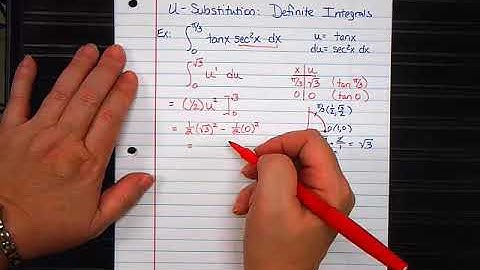 U-Substitution: Definite Integrals
Ex: ∫₀^{π/3} tanx sec²x dx
u = tanx
du = sec²x dx
∫₀^{√3} u¹ du
x | u
π/3 | √3 (tan π/3)
0 | 0 (tan 0)
= (1/2) u² ]₀^{√3}
π/3 (1/2, √3/2)
0 (1,0)
= 1/2(√3)² - 1/2(0)²
· 2/1 = √3
=